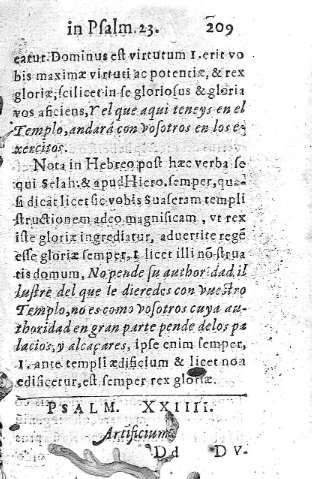 in Psalm. 23. 209
eatur. Dominus est virtutum i. erit vo
bis maximæ virtuti ac potentiæ, & rex
gloriæ, scilicet in se gloriosus & gloria
vos aficiens, Y el que aqui teneys en el
Templo, andará con vosotros en los e-
xercitos.
Nota in Hebreo post hæc verba se
qui Selah: & apud Hiero. semper, qua-
si dicat licet sic vobis suaseram templi
structionem adeo magnificam, vt rex
iste gloriæ ingrediatur, advertite regē
esse gloriæ semper, i. licet illi nō strua
tis domum, No pende su authoridad, il
lustre del que le dieredes con vuestro
Templo, no es como vosotros cuya au-
thoridad en gran parte pende de los pa
lacios, y alcaçares, ipse enim semper,
i. ante templi ædificium & licet non
edificetur, est semper rex gloriæ.
PSALM. XXIIII.
Artificium
Dd DV-